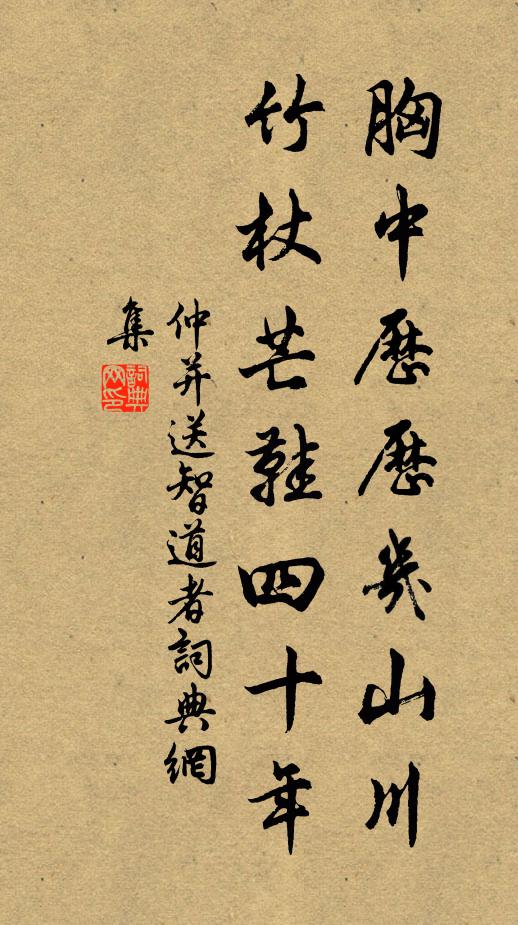 胸中歷歷幾山川
竹杖芒鞋四十年
仲并送智道者詞典網
集
詞典網印